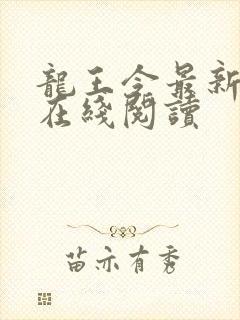 龍王令最新
在綫閱讀
苗亦有秀